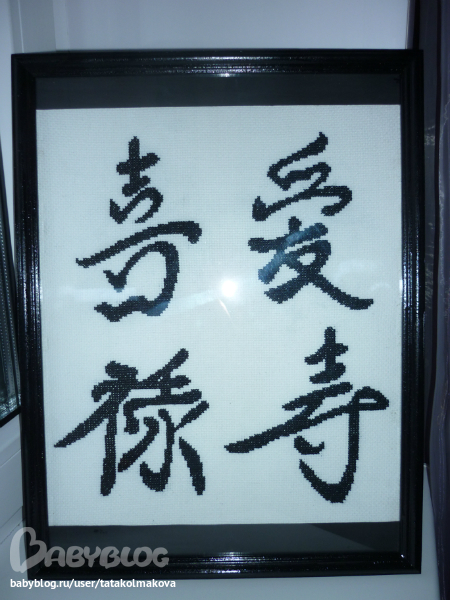 喜愛
禄寿
BABYBLOG
babyblog.ru/user/tatakolmakova